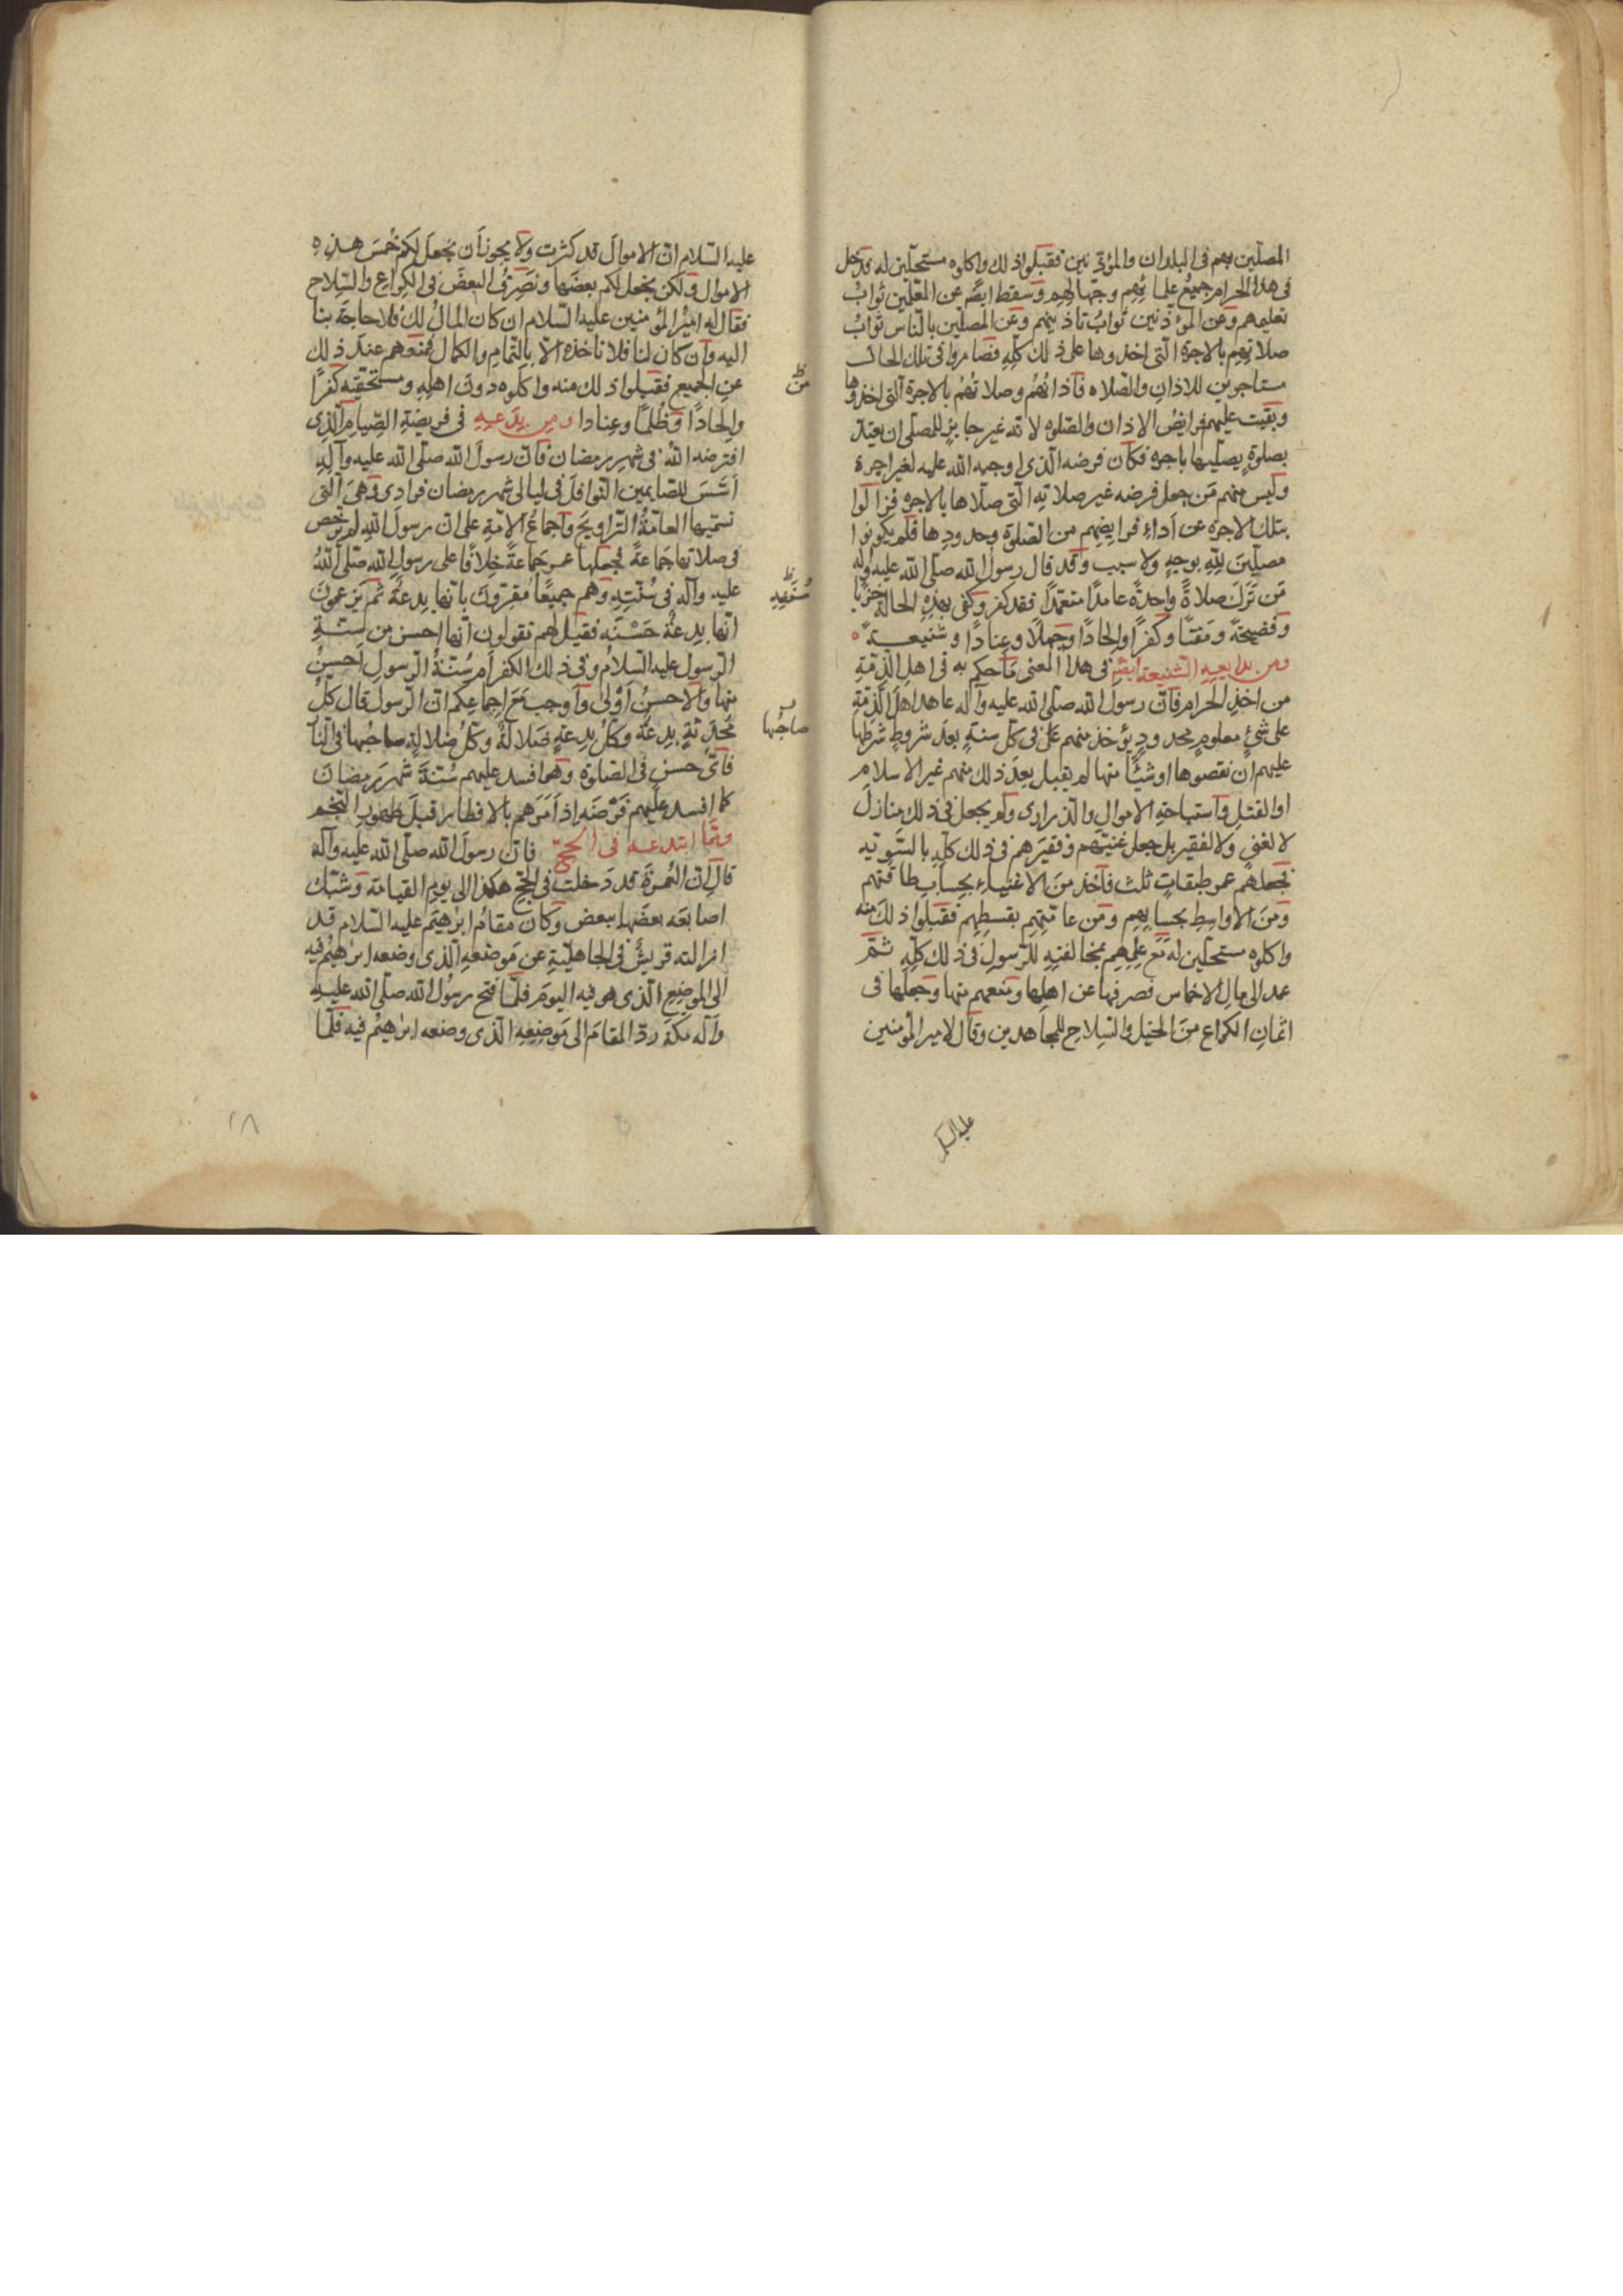 المصلّين بهم فى البلدان والمؤذنين فقبلوا ذلك واكلوه مستحلّين له فدخل
فى هذا الحرام جميع علمائهم وجهّالهم وسقط ايضًا عن المعلّمين ثوابُ
تعليمهم وعن المؤذنين ثوابُ تاذينهم وعن المصلّين بالناس ثوابُ
صلاتهم بالاجرة التى اخذوها على ذلك كلّه فصاروا فى تلك الحال
مستاجرين للاذان والصلاه فاذانُهُم وصلاتُهُم بالاجرة التى اخذوها
وبقيت عليهم فرايضُ الاذان والصلوه لانه غير جايز للمصلى ان يعتدّ
بصلوةٍ يصلّيها باجره فكان فرضه الذى اوجبه الله عليه لغير اجرة
وليس منهم مَن جعل فرضه غير صلاته التى صلّاها بالاجره فزالوا
بتلك الاجره عن اَداءِ فرايضهم من الصلوة وحدودها فلم يكونوا
مصلّينَ للّهِ بوجهٍ ولا سبب وقد قال رسول الله صلّى الله عليه وآله
مَن تَرَكَ صلاةً واحدةً عامدًا متعمّدًا فقد كفر وكفى بهذه الحالة خزيًا
وفضيحةً ومَقتًا وكفرًا والحادًا وجهلًا وعنادًا وشنيعـــةً ه
ومن بدايعه الشنيعة ايضًا فى هذا المعنى ما حكم به فى اهل الذمّةِ
من اخذِ الحرام فانّ رسولَ الله صلّى الله عليه وآله عاهد اهلَ الذمّةِ
على شئٍ معلومٍ محدودٍ يؤخذ منهم فى كلّ سنةٍ بعدَ شروطٍ شرطها
عليهم ان نقصوها او شيئًا منها لم يقبل بعدَ ذلك منهم غير الاسلام
او القتلِ واستباحةِ الاموالِ والذرارى ولم يجعل فى ذلك منازلَ
لا لغنى ولا لفقير بل جعل غنيّهم وفقيرهم فى ذلك كلّهِ بالسّويّه
فجعلهم عمر طبقاتٍ ثلث فاَخذ منَ الاغنياء بحسابِ طاقتهم
ومنَ الاواسِطِ بحسابهم ومن عامّتهم بقسطهم فقبلوا ذلكَ منه
واكلوه مستحلّين له مَع علمهم بمخالفتهِ للرّسولِ فى ذلك كلّهِ ثمّ
عمد الى مال الاخماس فصرفها عن اهلها ومنعهم منها وجعلها فى
اثمانِ الكراع منَ الخيل والسلاحِ للمجاهدين وقال لامير المؤمنين
عليه السلم
عليه السّلام انّ الاموالَ قد كثرت ولا يجوز اَن نجعلَ لكم خُمسَ هـذه
الاموال ولكن نجعل لكم بعضَها ونصرفُ البعضَ فى الكراع والسّلاح
فقال له اميرُ المؤمنين عليه السّلام ان كان المالُ لكَ فلا حاجةَ بنا
اليه وان كان لنا فلا ناخذه الّا بالتمام والكمال فمنعهم عندَ ذلك
منَ
عنِ الجميع فقبلوا ذلك منه واكلوه دونَ اهله ومستحقّيه كفرًا
والحادًا وظُلمًا وعِنادا ومن بِدَعـه فى فريضةِ الصّيامِ الّذى
افترضه اللهُ فى شهر رمضان فانّ رسولَ الله صلّى الله عليه وآله
اَسَّسَ للصايمين النّوافلَ فى ليالى شهر رمضان فرادى وهىَ الّتى
تسمّيها العامّةُ التراويحَ واجماعُ الامّةِ على انّ رسولَ اللهِ لم يرخّص
فى صلاتها جَماعةً فجعلها عمر جَماعةً خلافًا على رسول الله صلّى اللهُ
عليه وآله فى سُنّته وهم جميعًا مُقرّونَ بانّها بِدعةٌ ثم يَزعمونَ
انّها بِدعةٌ حَسَنَه فقيل لهم تقولون انّها احسن من سنّـةِ
الرّسول عليه السلامُ وفى ذلك الكفر اَم سُنّةُ الرّسولِ احسنُ
منها والاحسنُ اَوْلى واَوجب مَع اِجماعِكم انّ الرّسول قال كلُّ
صاحبُها
مُحدَثةٍ بِدعةٌ وكلُّ بِدعةٍ ضلالةٌ وكلّ ضلالةٍ صاحبُها فى النّار
فاىّ حسنٍ فى الصلوةِ وهو افسد عليهم سُنّةَ شهر رمضانَ
كما افسد عليهم فَرْضَه اذ اَمَرَهم بالافطار قبلَ ظهورِ النّجم
وممّا ابتدعـه فى الحجّ فانّ رسولَ الله صلّى الله عليه وآله
قال انّ العُمرَةَ قد دَخلت فى الحجّ هكذا الى يوم القيامة وشبّك
اصابعَه بعضَها ببعض وكان مقامُ ابرٰهيمَ عليه السّلام قد
ازالته قريشٌ فى الجاهليّةِ عن مَوضعهِ الّذى وضعه ابرٰهيمُ فيه
الى الموضعِ الّذى هو فيه اليومَ فلمّا فتح رسُولُ الله صلّى الله عليـه
وآله مكةَ ردّ المقامَ الى مَوضِعِهِ الّذى وضعه ابرٰهيمُ فيه فلمّا